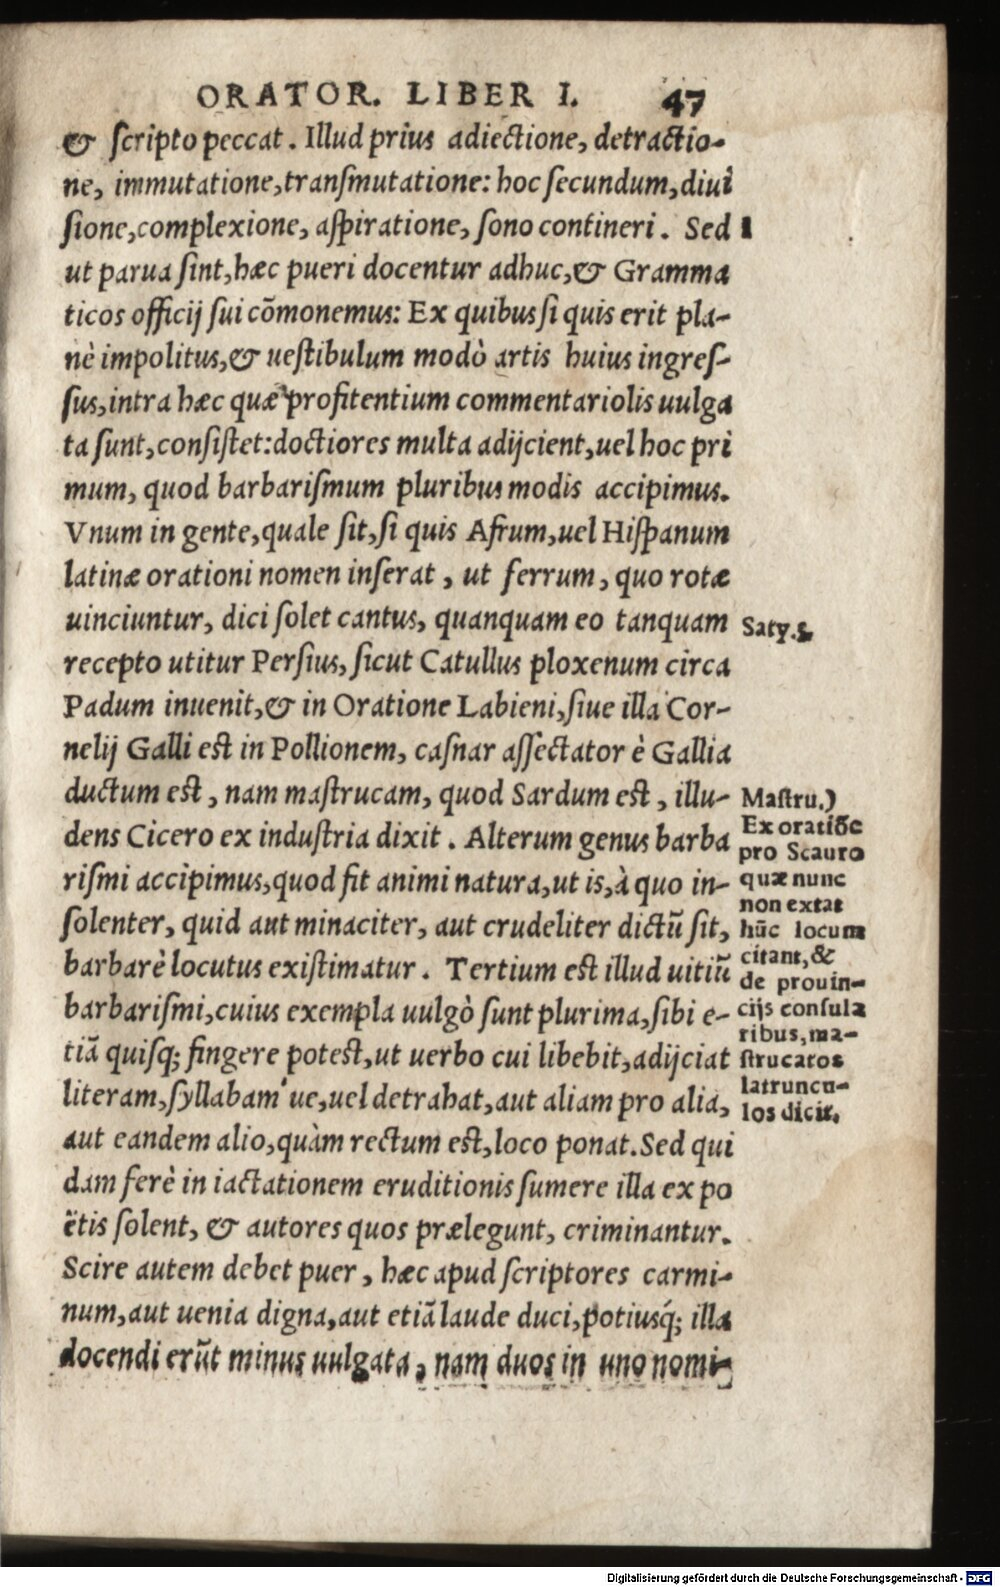 ORATOR. LIBER I. 47
& ſcripto peccat. Illud prius adiectione, detractio-
ne, immutatione, tranſmutatione: hoc ſecundum, diui
ſione, complexione, aſpiratione, ſono contineri. Sed
ut parua ſint, hæc pueri docentur adhuc, & Gramma
ticos officij ſui cōmonemus: Ex quibus ſi quis erit pla-
nè impolitus, & ueſtibulum modò artis huius ingreſ-
ſus, intra hæc quæ profitentium commentariolis uulga
ta ſunt, conſiſtet: doctiores multa adijcient, uel hoc pri
mum, quod barbariſmum pluribus modis accipimus.
Vnum in gente, quale ſit, ſi quis Afrum, uel Hiſpanum
latinæ orationi nomen inſerat, ut ferrum, quo rotæ
uinciuntur, dici ſolet cantus, quanquam eo tanquam
recepto utitur Perſius, ſicut Catullus ploxenum circa
Padum inuenit, & in Oratione Labieni, ſiue illa Cor-
nelij Galli eſt in Pollionem, caſnar aſſectator è Gallia
ductum eſt, nam maſtrucam, quod Sardum eſt, illu-
dens Cicero ex induſtria dixit. Alterum genus barba
riſmi accipimus, quod fit animi natura, ut is, à quo in-
ſolenter, quid aut minaciter, aut crudeliter dictū ſit,
barbarè locutus exiſtimatur. Tertium eſt illud uitiū
barbariſmi, cuius exempla uulgò ſunt plurima, ſibi e-
tiā quiſq; fingere poteſt, ut uerbo cui libebit, adijciat
literam, ſyllabam'ue, uel detrahat, aut aliam pro alia,
aut eandem alio, quàm rectum eſt, loco ponat. Sed qui
dam ferè in iactationem eruditionis ſumere illa ex po
ëtis ſolent, & autores quos prælegunt, criminantur.
Scire autem debet puer, hæc apud ſcriptores carmi-
num, aut uenia digna, aut etiā laude duci, potiusq́; illa
docendi erūt minus uulgata, nam duos in uno nomi-
1
Saty. 5.
Maſtru.)
Ex oratiōe
pro Scauro
quæ nunc
non extat
hūc locum
citant, &
de prouin-
cijs conſula
ribus, ma-
ſtrucatos
latruncu-
los dicit.
Digitalisierung gefördert durch die Deutsche Forschungsgemeinschaft - DFG